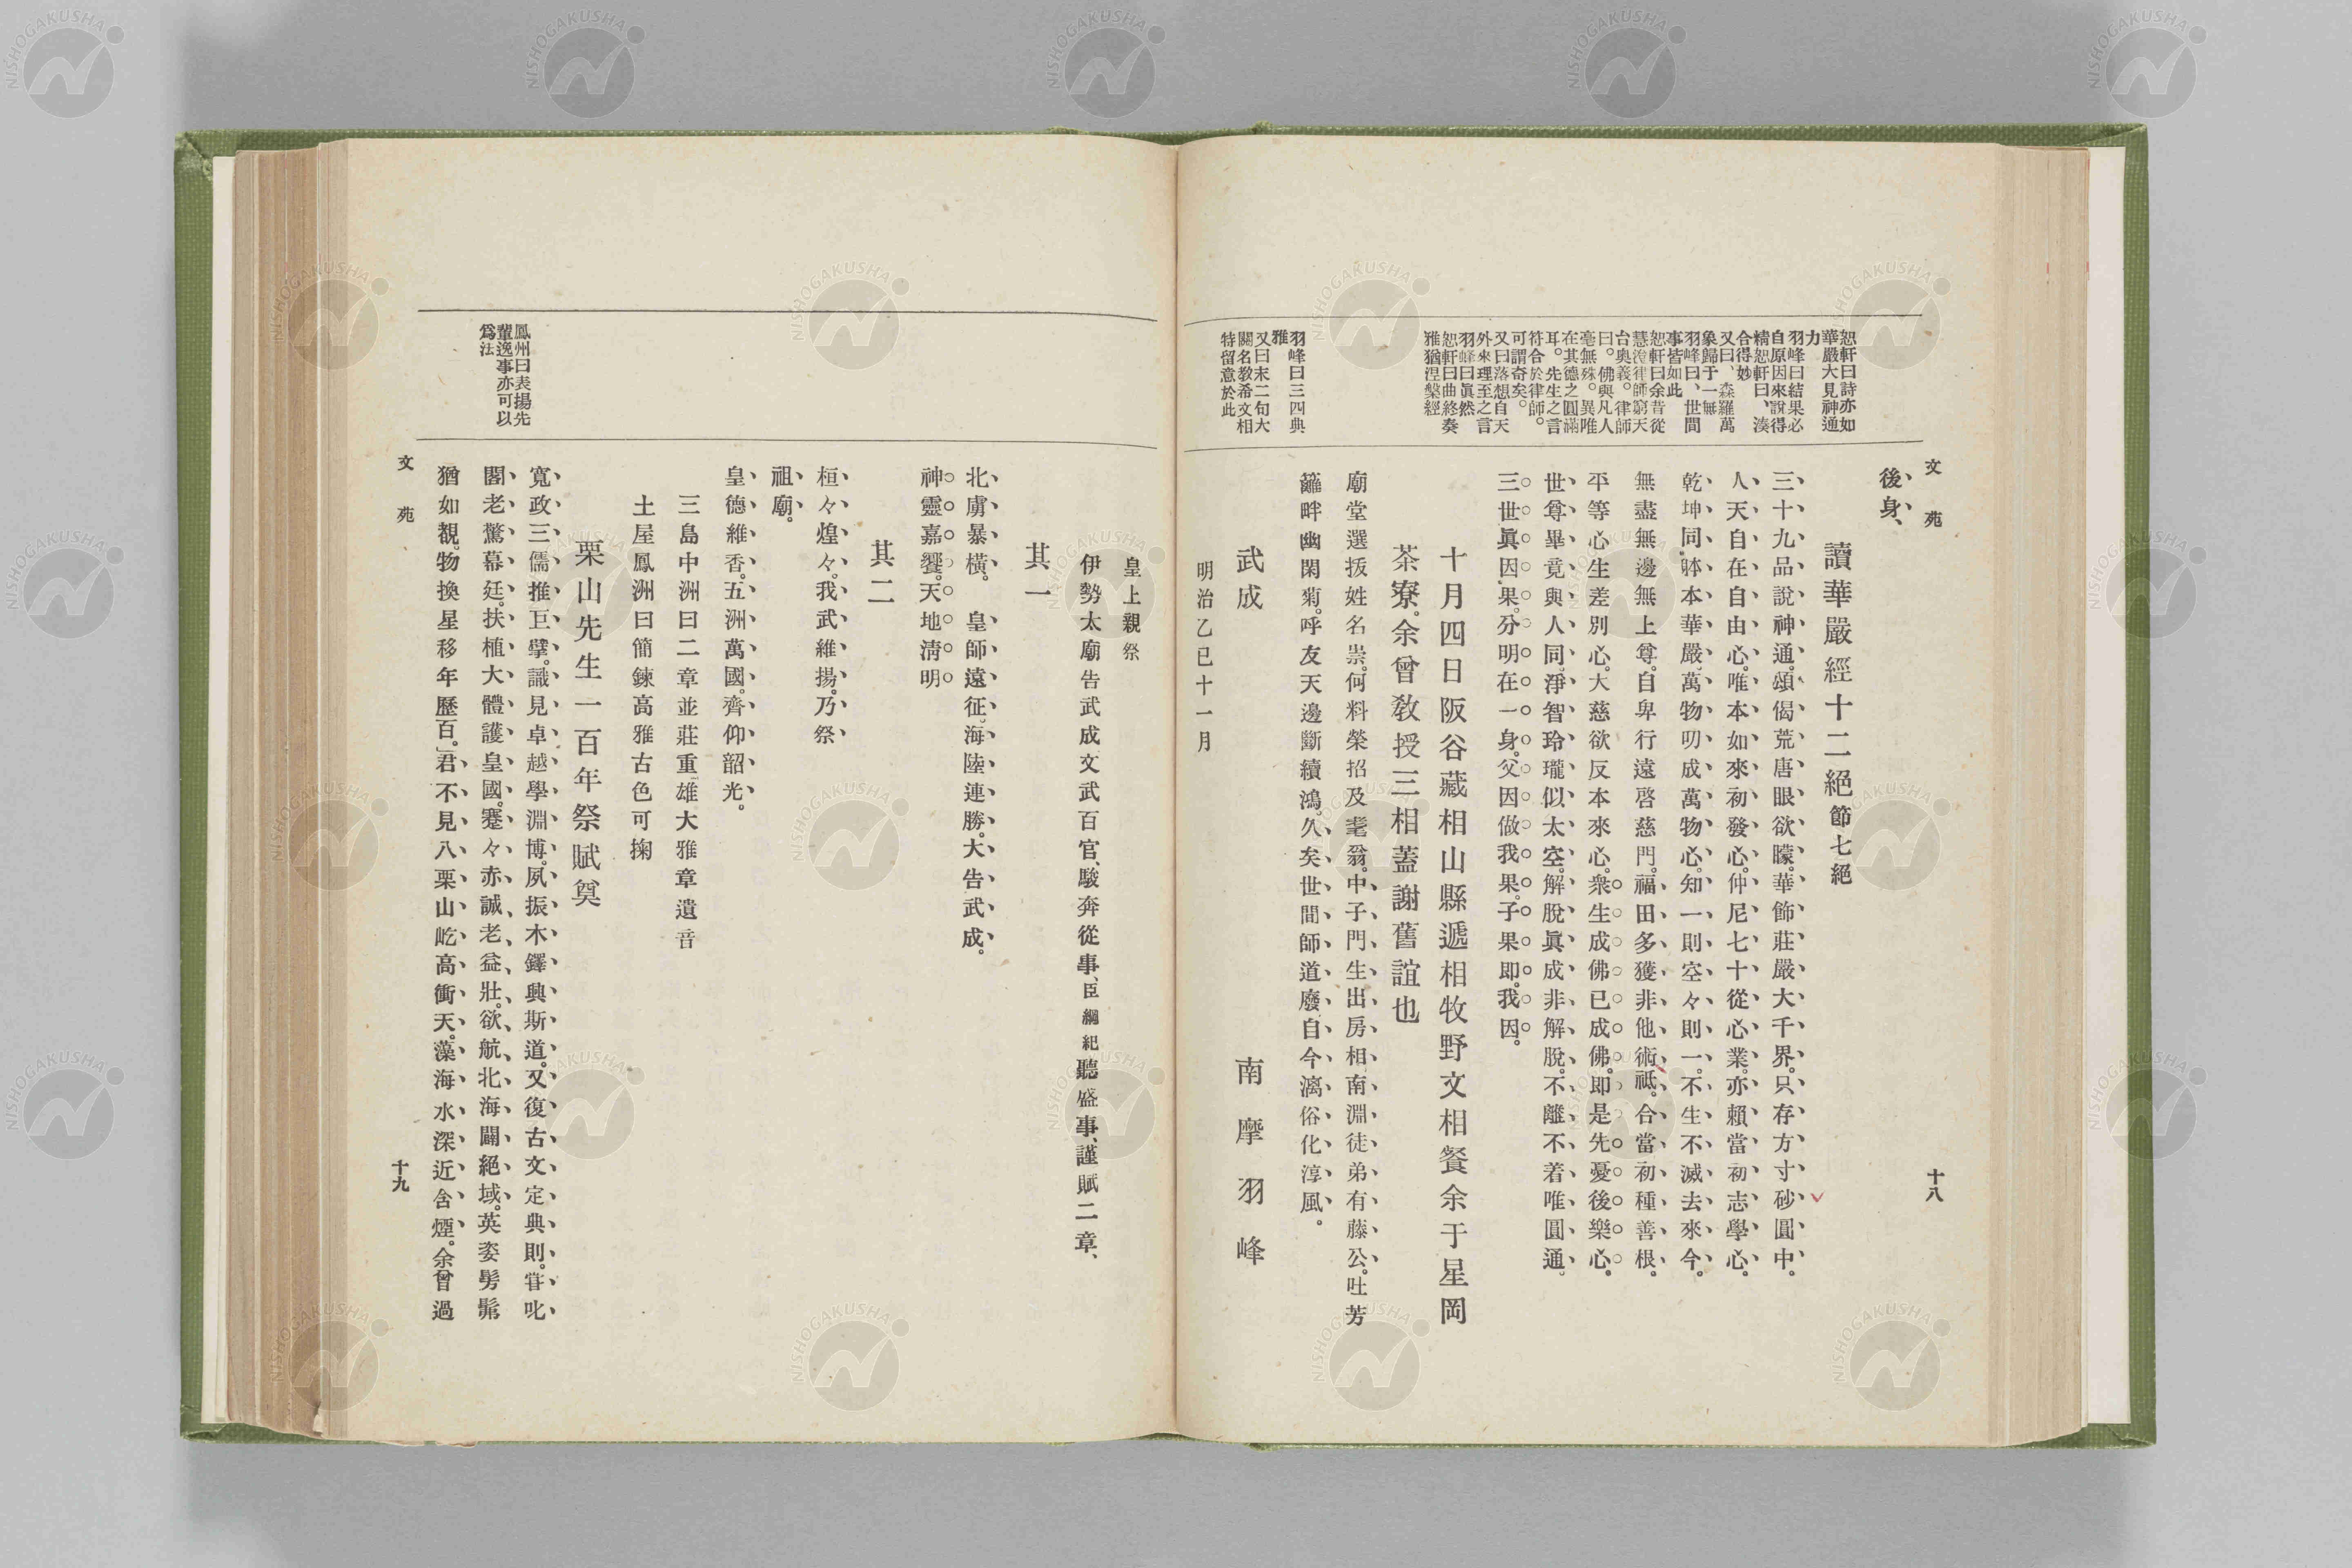 文苑
十八
恕軒曰詩亦如
華嚴大見神通
力
羽峰曰結果必
自原因來說得
精恕軒曰、湊
合得妙
又曰、森羅萬
象歸于一無
羽峰曰、世間
事皆如此
恕軒曰余昔從
慧澄律師窮天
台奥義。律師
曰。佛與凡人
毫無殊。異唯
在其德之圓滿
耳。先生之言
符合於律師。
可謂奇矣。
又曰落想自天
外來理至之言
羽峰曰眞然
恕軒曰曲終奏
雅猶涅槃經
羽峰曰三四典
雅
又曰末二句大
關名敎希文相
特留意於此
後身、
讀華嚴經十二絕節七絕
三十九品說神通。頌偈荒唐眼欲矇。華飾莊嚴大千界。只存方寸砂圓中。
人天自在自由心。唯本如來初發心。仲尼七十從心業。亦賴當初志學心。
乾坤同躰本華嚴。萬物叨成萬物心。知一則空々則一。不生不滅去來今。
無盡無邊無上尊。自卑行遠啓慈門。福田多獲非他術。祗合當初種善根。
平等心生差別心。大慈欲反本來心。衆生成佛已成佛。即是先憂後樂心。
世尊畢竟與人同。淨智玲瓏似太空。解脫眞成非解脫。不離不着唯圓通。
三世眞因果。分明在一身。父因做我果。子果即我因。
十月四日阪谷藏相山縣遞相牧野文相餐余于星岡
茶寮。余曾敎授三相蓋謝舊誼也
廟堂選拔姓名崇。何料榮招及耄翁。中子門生出房相。南淵徒弟有藤公。吐芳
籬畔幽閑菊。呼友天邊斷續鴻。久矣世間師道廢。自今漓俗化淳風。
武成 南摩羽峰
明治乙巳十一月
皇上親祭
伊勢太廟告武成文武百官、駿奔從事、臣綱紀聽盛事、謹賦二章、
其一
北虜暴橫。 皇師遠征。海陸連勝。大告武成。
神靈嘉饗。天地淸明
其二
桓々煌々。我武維揚。乃祭
祖廟。
皇德維香。五洲萬國。齊仰韶光。
三島中洲曰二章並莊重雄大雅章遺音
土屋鳳洲曰簡鍊高雅古色可掬
栗山先生一百年祭賦奠
寬政三儒推巨擘。識見卓越學淵博。夙振木鐸興斯道。又復古文定典則。甞叱
閣老驚幕廷。扶植大體護皇國。蹇々赤誠老益壯。欲航北海闢絕域。英姿髣髴
猶如覩。物換星移年歷百。」君不見八栗山屹高衝天。藻海水深近含煙。余曾過
鳳州曰表揚先
輩逸事亦可以
爲法
文苑
十九